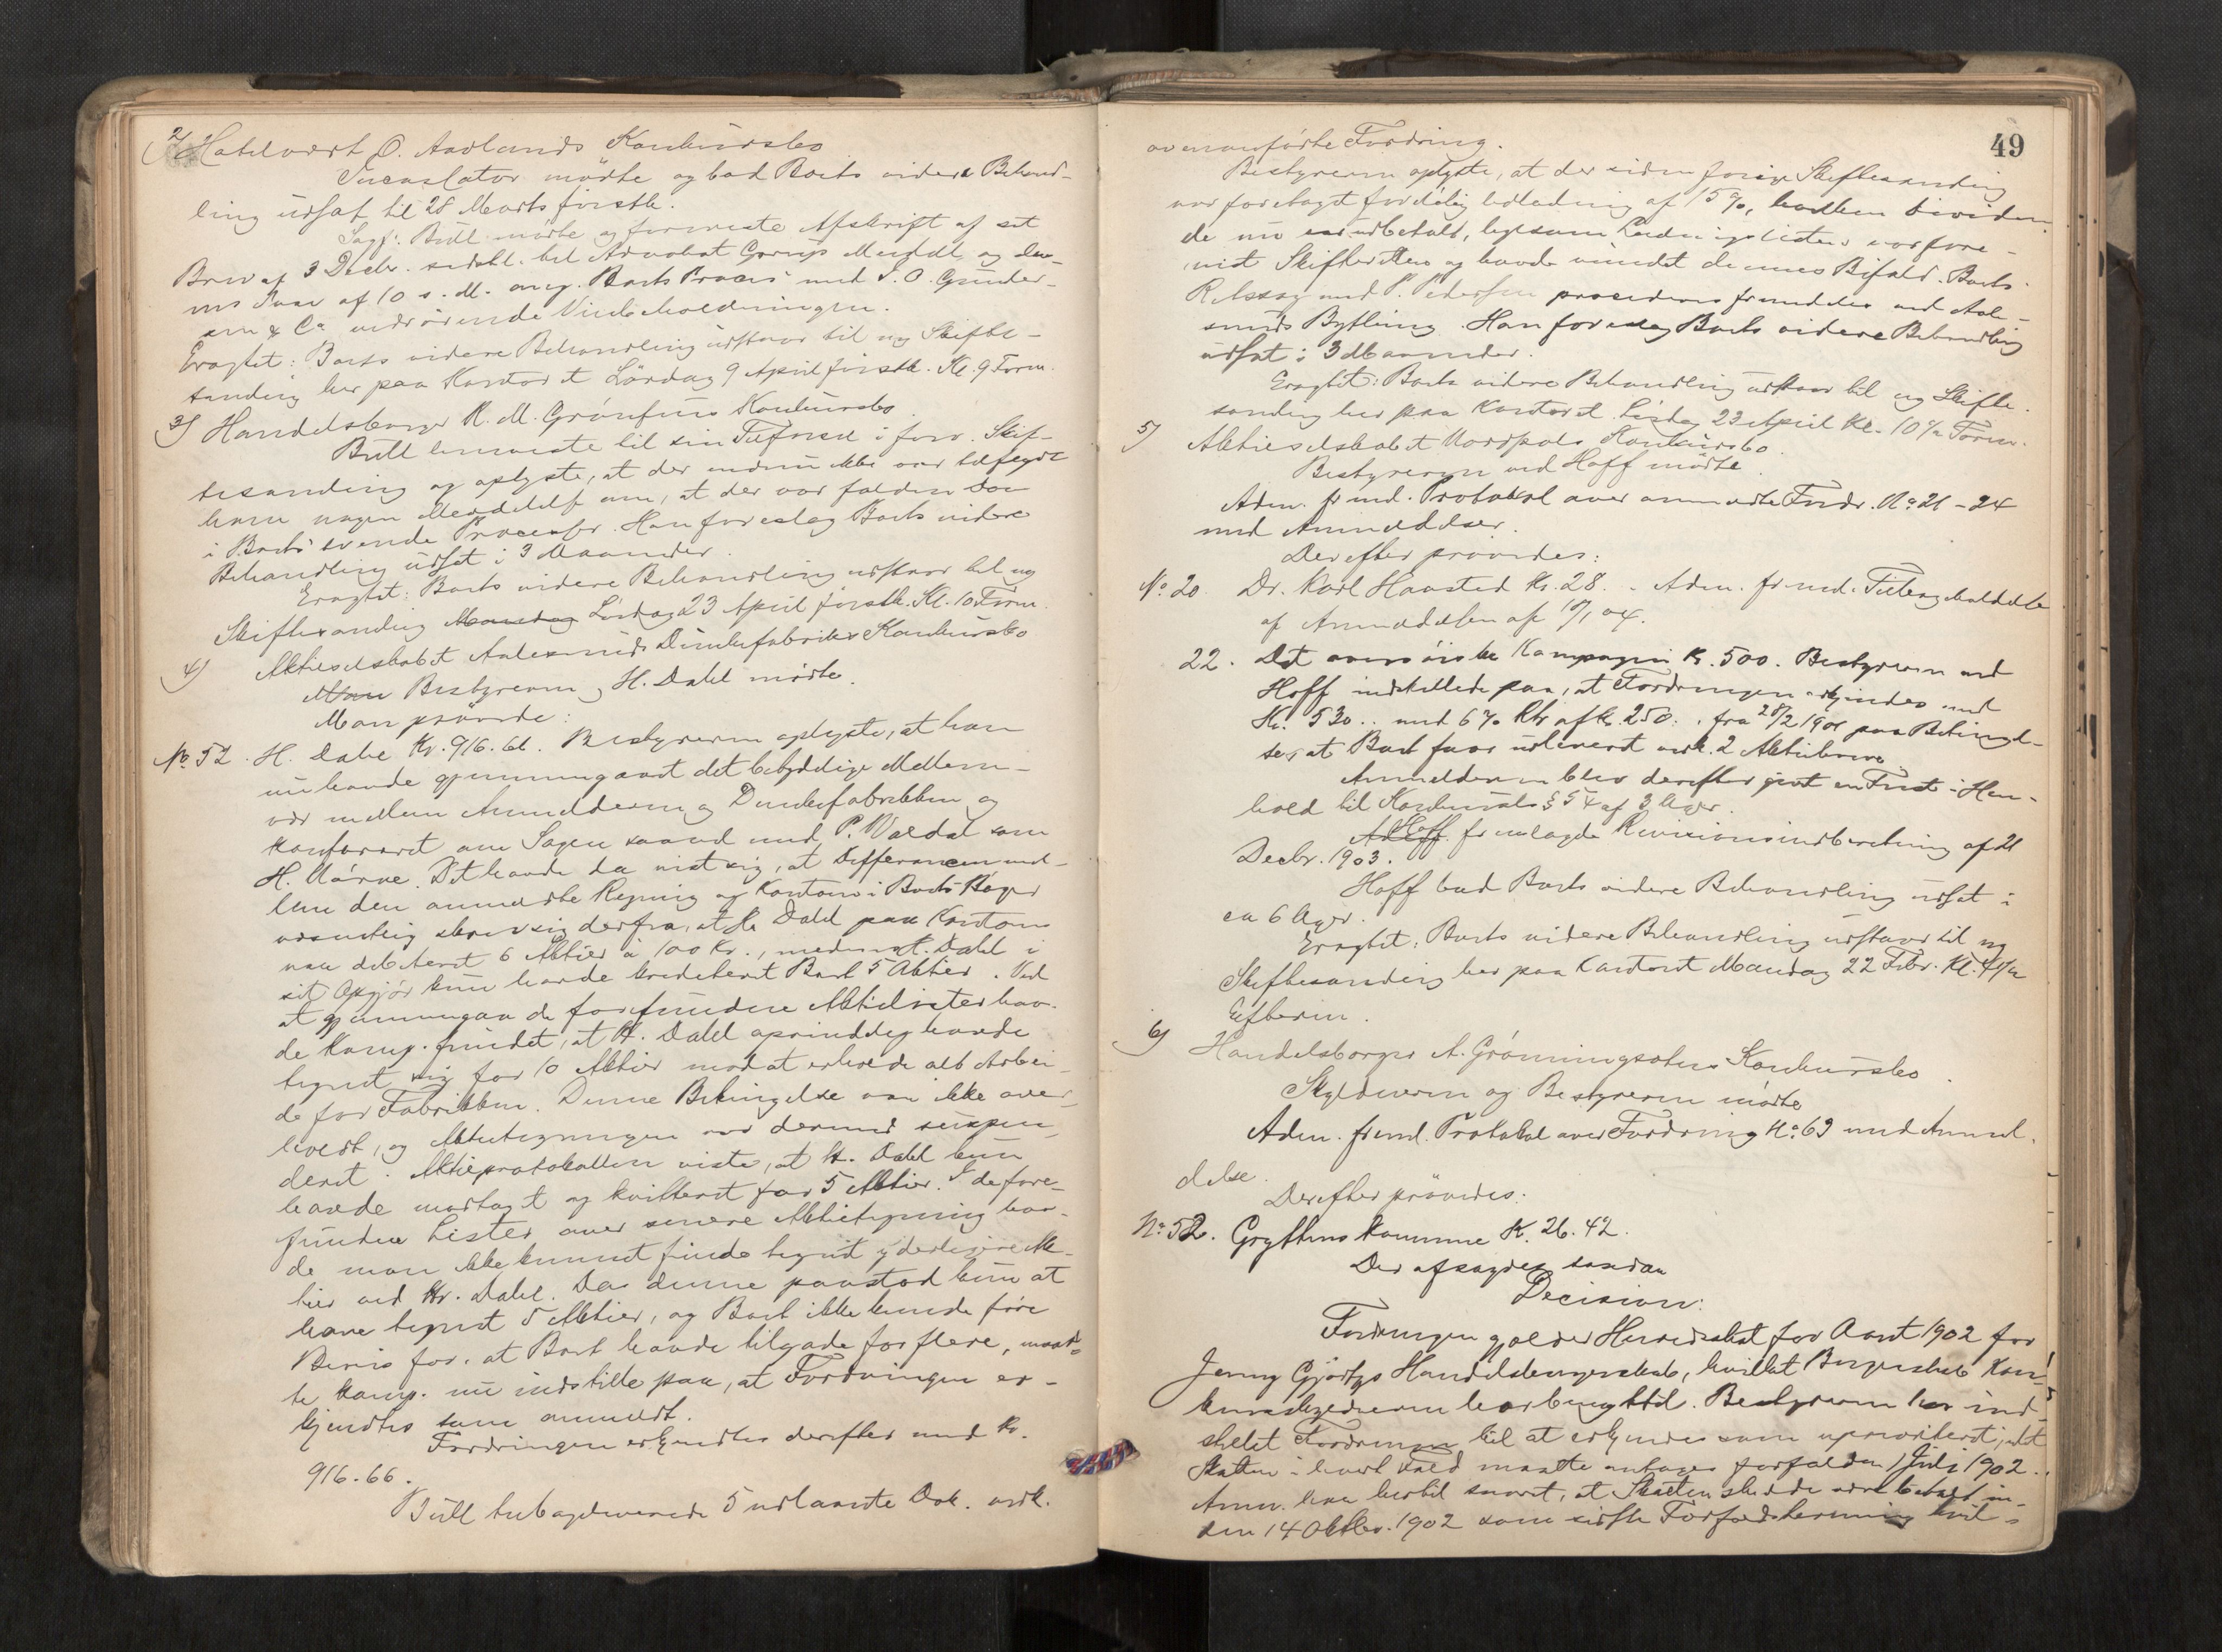 2) Hotelvært O. Aarlands Konkursbo
Incaslator mødte og bad Boets videre Behand-
ling udsat til 28 Marts førstk.
Sagf. Bull mødte og foreviste Afskrift af sit
Brev af 3 Decbr. sidstl. til Advokat Meidell og den-
nes Svar af 10 s. M. ang. Boets Proces med I. O. Gunder-
sen & Co vedrørende Vinbeholdningen.
Eragtet: Boets videre Behandling udstaar til ny Skifte-
samling her paa Kontoret Lördag 9 April førstk. Kl. 9 Form.
3) Handelsborger K. M. Grönfurs Konkursbo.
Bull henviste til sin Tilførsel i forr. Skif-
tesamling og oplyste, at der endnu ikke var tilflydt
ham nogen Meddelelse om, at der var falden Dom
i Boets svende Processer. Han foreslog Boets videre
Behandling udsat i 3 Maaneder.
Eragtet: Boets videre Behandling udstaar til ny
Skiftesamling Mandag Lördag 23 April førstk. Kl. 10 Form.
4) Aktieselskabet Aalesunds Dunkefabriks Konkursbo
Man Bestyreren, H. Dahl mødte.
Man prövede:
No 52. H. Dahl Kr. 916.66. Bestyreren oplyste, at han
nu havde gjennemgaaet det betydelige Mellem-
vær mellem Anmelderen og Dunkefabrikken og
konfereret om Sagen saavel med P. Valdal som
H. Nørve. Det havde da vist sig, at Differancen mel-
lem den anmeldte Regning og Kontoen i Boets Bøger
væsentlig skrev sig derfra, at H. Dahl paa Kontoen
var debiteret 6 Aktier à 100 Kr., medens H. Dahl i
sit Opgjør kun havde krediteret Boet 5 Aktier. Ved
at gjennemgaa de forefundne Aktielister hav-
de Komp. fundet, at H. Dahl oprindelig havde
tegnet sig for 10 Aktier mod at erholde alt Arbei-
de for Fabrikken. Denne Betingelse var ikke over-
holdt, og Aktietegningen var dermed suspen-
deret. Aktieprotokollen viste, at H. Dahl kun
havde modtaget og kvitteret for 5 Aktier. I de fore-
fundne Lister over senere Aktietegning hav-
de man ikke kunnet finde tegnet yderligere Ak-
tier ved Hr. Dahl. Da denne paastod kun at
have tegnet 5 Aktier, og Boet ikke kunde føre
Bevis for, at Boet havde tilgode for flere, maat-
te Komp. nu indstille paa, at Fordringen er-
kjendtes som anmeldt.
Fordringen erkjendtes derefter med Kr.
916.66.
Bull tilbageleverede 5 udlaante Dok. vedk.
49
ovenanførte Fordring.
Bestyreren oplyste, at der siden forrige Skiftesamling
var foretaget foreløbig Udlodning af 15 %, hvilken Dividen-
de nu var udbetalt, ligesom Lodningslisten var fore-
vist Skifteretten og havde vundet dennes Bifald. Boets
Retssag med P. Pedersen procederes fremdeles ved Aale-
sunds Bything. Han foreslog Boets videre Behandling
udsat i 3 Maaneder.
Eragtet: Boets videre Behandling udstaar til ny Skifte-
samling her paa Kontoret Lördag 23 April Kl. 10½ Form.
5) Aktieselskabet Nordpols Konkursbo.
Bestyreren ved Hoff mødte.
Adm. freml. Protokol over anmeldte Fordr. No 21-24
med Anmeldelser.
Derefter prövedes:
No 20. Dr. Karl Haasted Kr. 28. . Adm. freml. Tilbagekaldelse
af Anmeldelsen af 18/1 04.
22. Det oversøiske Kompagni Kr. 500. Bestyreren ved
Hoff indstillede paa, at Fordringen erkjendes med
Kr. 530.. med 6 % Rtr. af Kr. 250. . fra 28/2 1901 paa Betingel-
se, at Boet faar udleveret vedk. 2 Aktiebreve.
Anmelderen blev derefter givet en Frist i Hen-
hold til Konkursl. § 54 af 3 Uger.
Ad Hoff fremlagde Revisionsindberetning af 21
Decbr. 1903.
Hoff bad Boets videre Behandling udsat i
ca 6 Uger.
Eragtet: Boets videre Behandling udstaar til ny
Skiftesamling her paa Kontoret Mandag 22 Febr. Kl. 4½
Efterm.
6) Handelsborger A. Grönningsæters Konkursbo.
Skyldneren og Bestyreren mødte
Adm. freml. Protokol over Fordring No 63 med Anmel-
delse.
Derefter prövedes:
No 52. Gryttens Kommune K. 26.42.
Der afsagdes saadan
Decision:
Fordringen gjælder Herredsskat for Aaret 1902 for
Jenny Gjørtzs Handelsborgerskab, hvilket Borgerskab Kon-
kursskyldneren har benyttet. Bestyreren har ind-
stillet Fordringen til at erkjendes som uprioriteret, idet
Skatten i hvert Fald maatte antages forfalden 1 Juli 1902.
Anm. har hertil svaret, at Skatten skulde være betalt in-
den 14 Oktbr. 1902 som sidste Forfaldstermin, hvil-